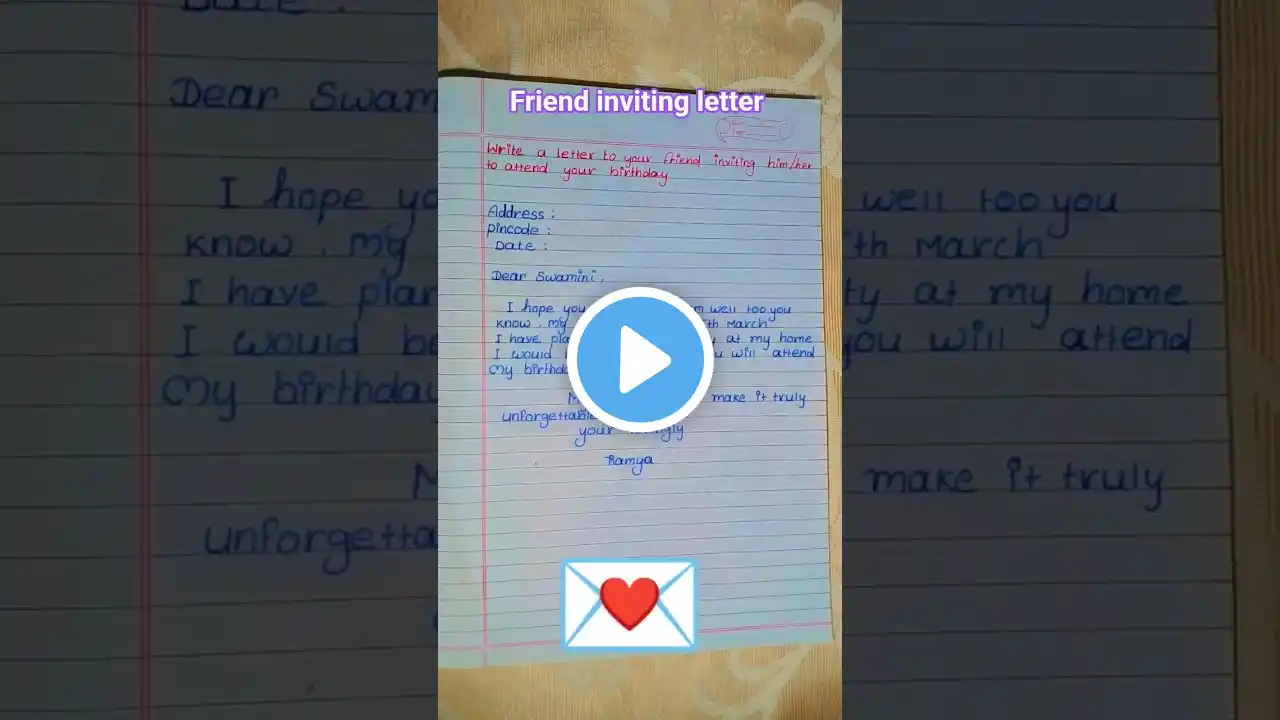 Friend inviting letter
Write a letter to your friend inviting him/her
to attend your birthday
Address :
Pincode :
Date :
Dear Swamini,
I hope you well too you
know , my th March
I have at my home
I would be you will attend
My birthday
make it truly
unforgettable
your
Ramya